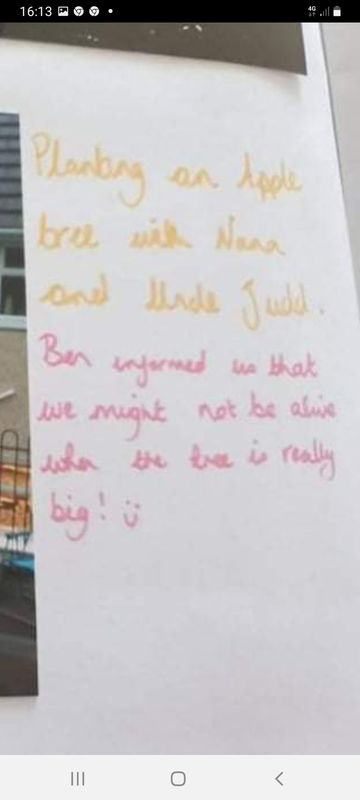 16:13
4G
Planting an Apple
tree with Nana
and Uncle Judd.
Ben informed us that
we might not be alive
when the tree is really
big! ü